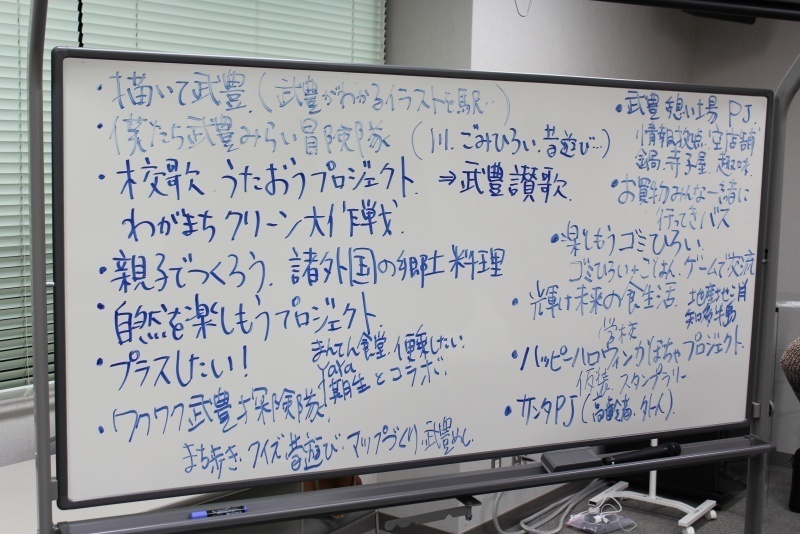 ・描いて武豊（武豊がわかるイラストを駅…）
・僕たち武豊みらい冒険隊（川.ごみひろい.昔遊び…）
・校歌 うたおうプロジェクト ⇒武豊讃歌
わがまちクリーン大作戦
・親子でつくろう. 諸外国の郷土料理
・自然を楽しもうプロジェクト
・プラスしたい！
まんてん食堂.便乗したい.
YaYa
1期生とコラボ.
・ワクワク武豊探険隊
まち歩き.クイズ.昔遊び.マップづくり.武豊めし
・武豊憩い場PJ.
情報拠点 空店舗
寺子屋. 趣味
・お買物みんな一緒に
行ってきバス
・楽しもうゴミひろい
ゴミひろい+ごはん.ゲームで交流
・輝け未来の食生活
地産地消
知多牛
学校
・ハッピーハロウィンかぼちゃプロジェクト
仮装 スタンプラリー
・サンタPJ（高齢者.外人）